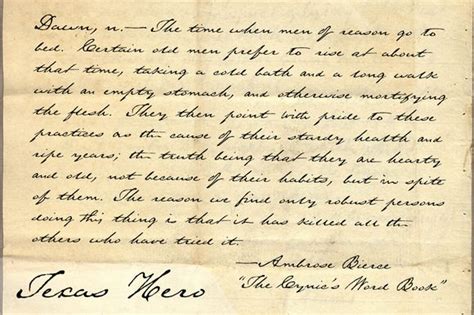 Dawn, n.— The time when men of reason go to
bed. Certain old men prefer to rise at about
that time, taking a cold bath and a long walk
with an empty stomach, and otherwise mortifying
the flesh. They then point with pride to these
practices as the cause of their sturdy health and
ripe years; the truth being that they are hearty
and old, not because of their habits, but in spite
of them. The reason we find only robust persons
doing this thing is that it has killed all the
others who have tried it.
—Ambrose Bierce
"The Cynic's Word Book"
Texas Hero